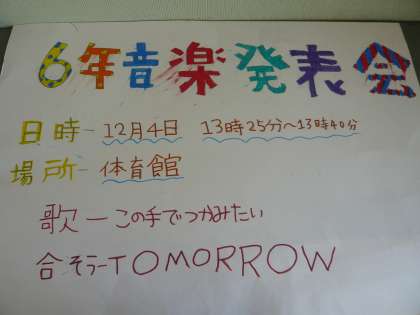 6年音楽発表会
日時ー12月4日 13時25分〜13時40分
場所ー体育館
歌ーこの手でつかみたい
合そうーTOMORROW